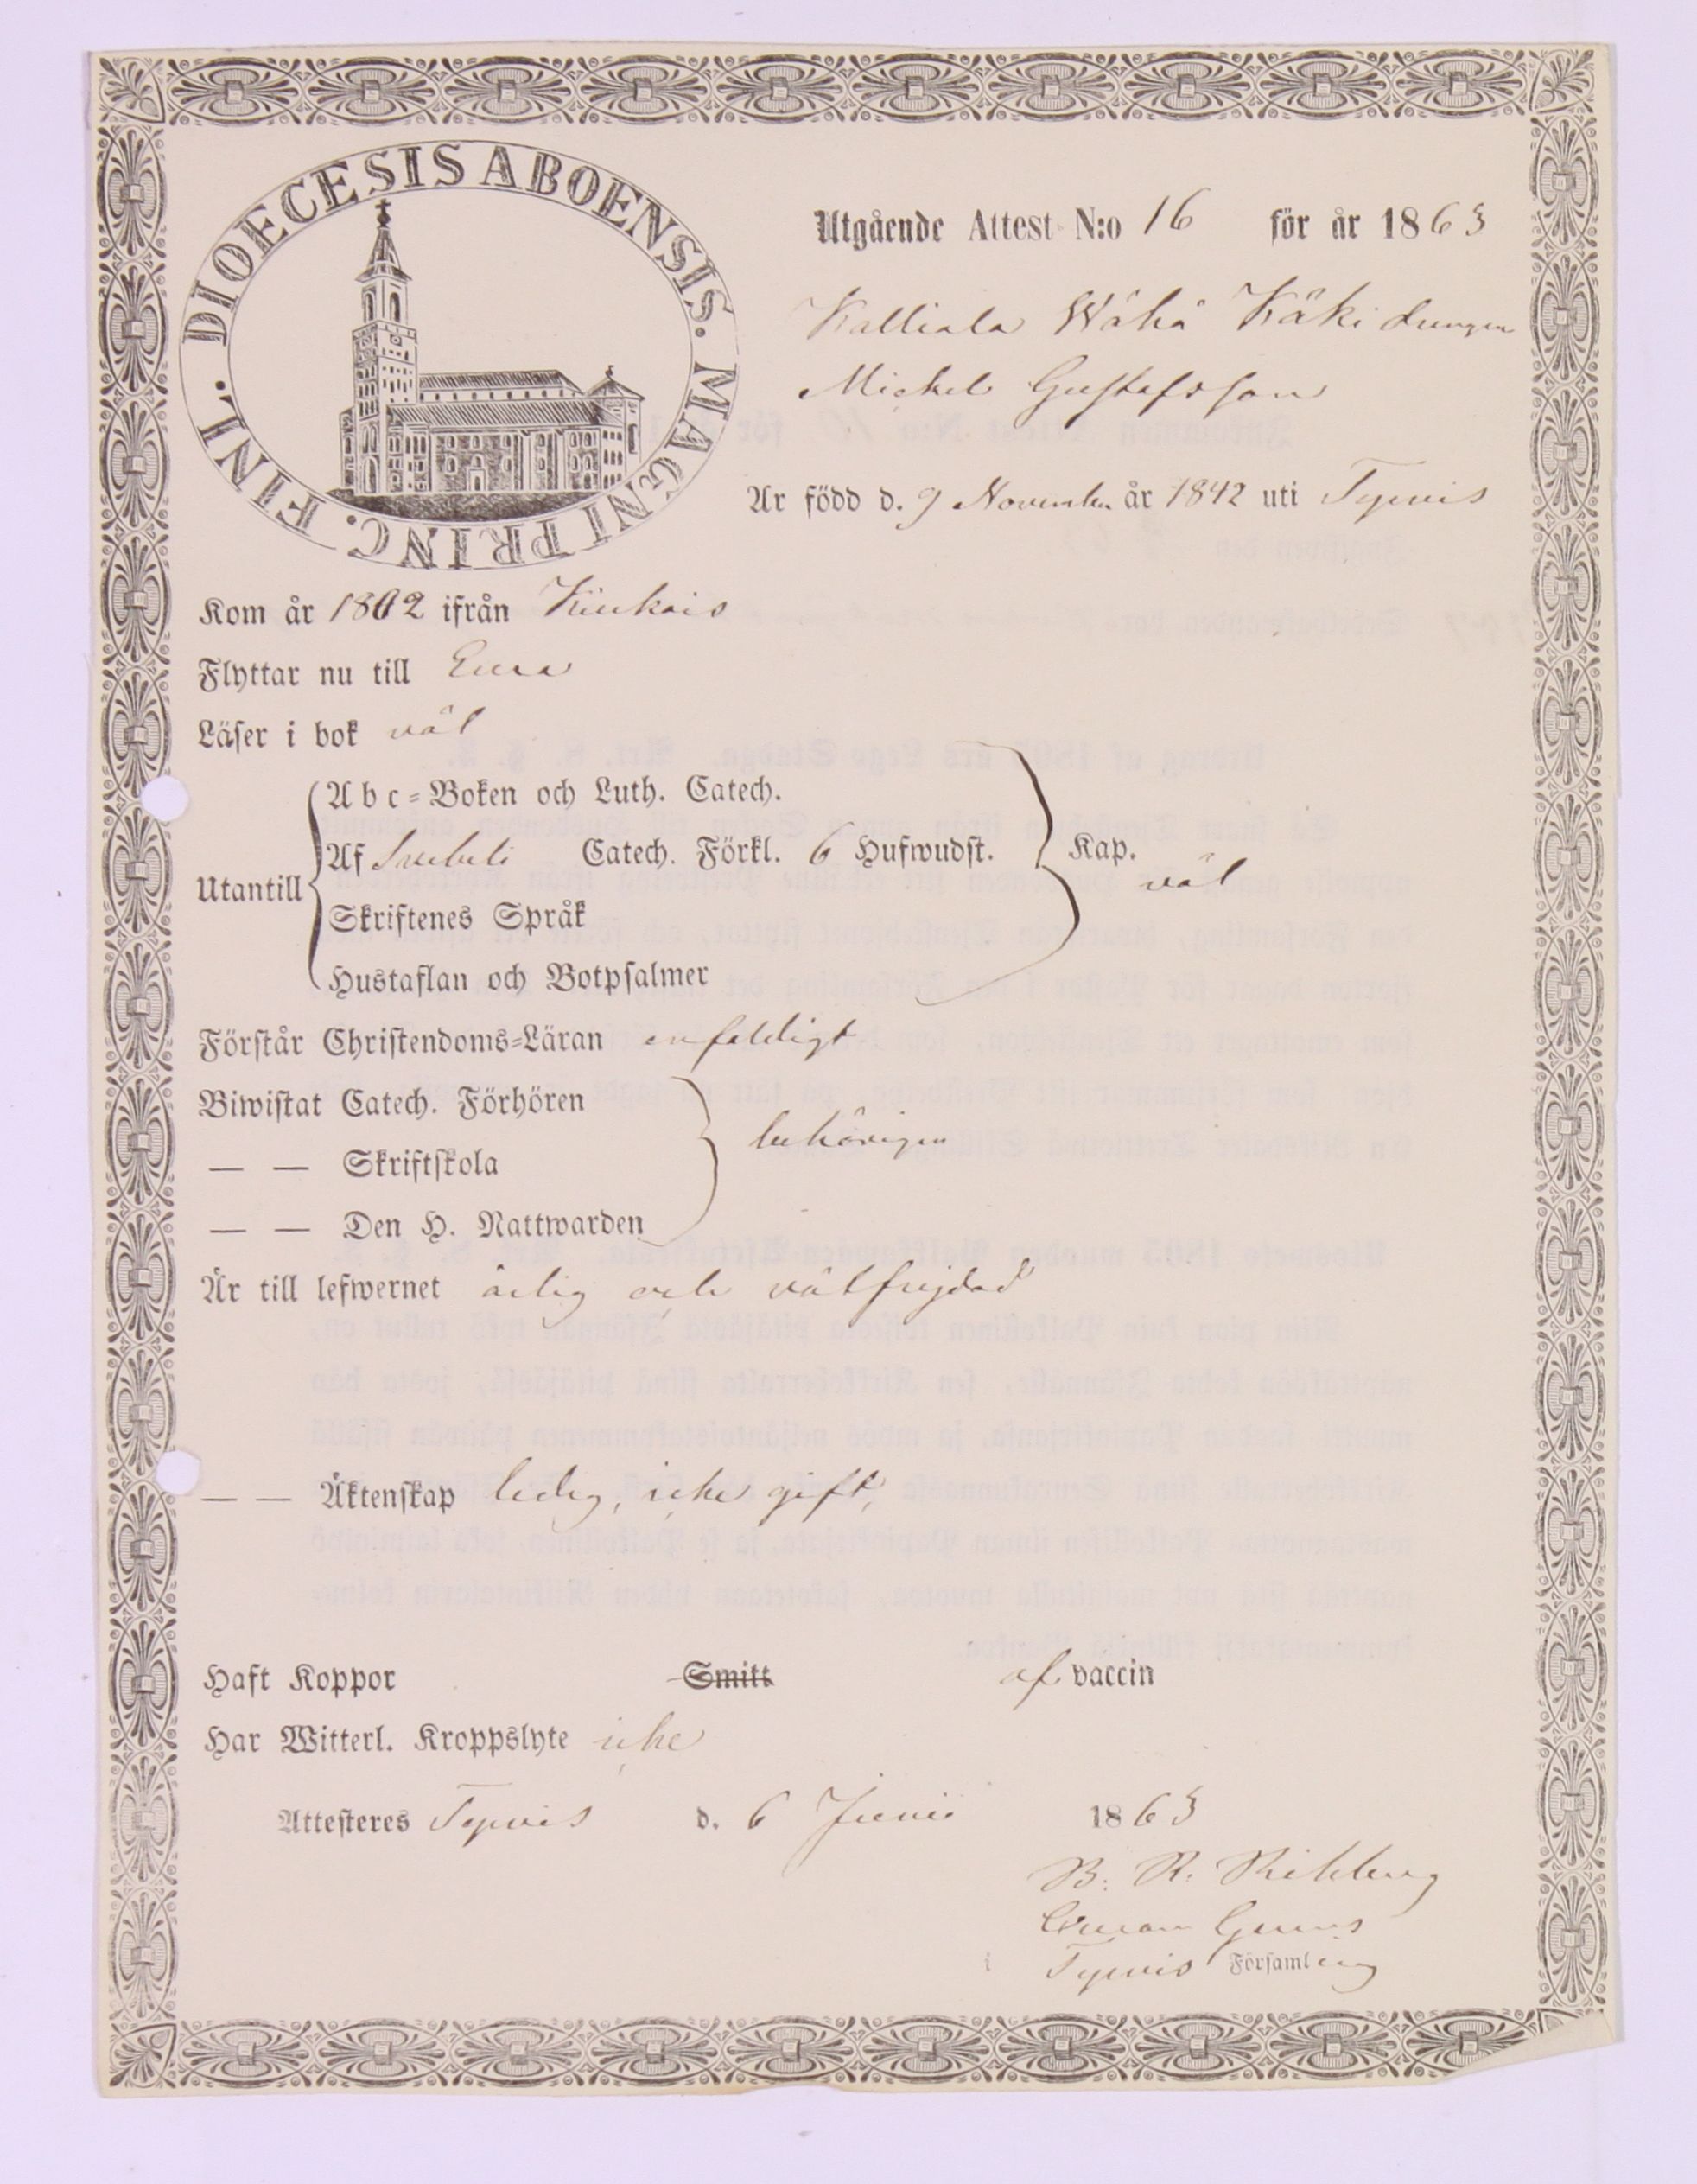 DIOECESIS ABOENSIS. MAGNI PRINC. FINL.
Utgående Attest N:o 16 för år 1863
Kalliala Wähä Käki drengen
Michel Gustafsson
Är född d. 9 November år 1842 uti Tyrvis
Kom år 1862 ifrån Kiukais
Flyttar nu till Eura
Läser i bok väl
Utantill
Abc-Boken och Luth. Catech.
Af Svebeli Catech. Förkl. 6 Hufwudst. Kap. väl
Skriftenes Språk
Hustaflan och Botpsalmer
Förstår Christendoms-Läran enfaldigt
Biwistat Catech. Förhören
— — Skriftskola behörigen
— — Den H. Nattwarden
Är till lefwernet ärlig och välfrejdad
— — Äktenskap ledig, icke gift,
Haft Koppor Smitt af vaccin
Har Witterl. Kroppslyte icke
Attesteres Tyrvis d. 6 Junii 1863
B. R.
i Tyrvis Församling